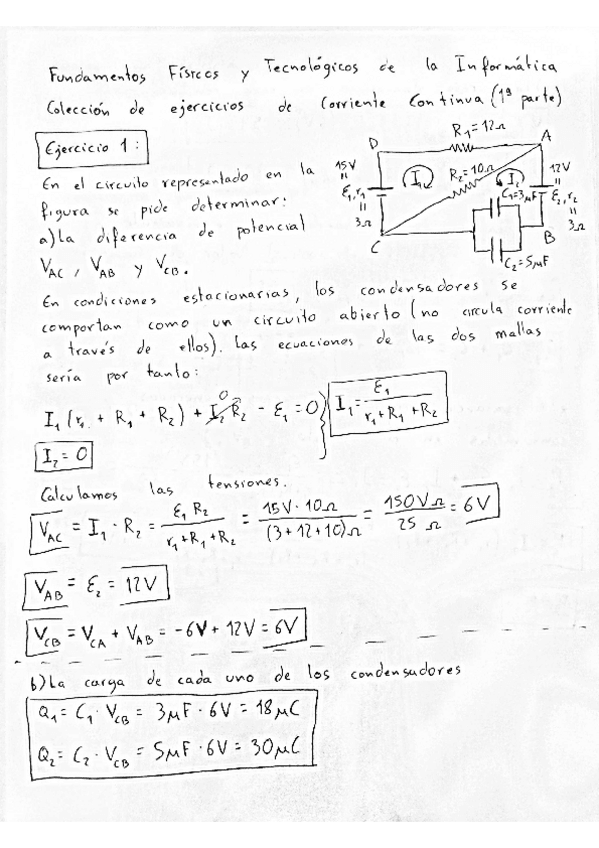 Fundamentos Físicos y Tecnológicos de la Informática
Colección de ejercicios de Corriente Continua (1ª parte)
Ejercicio 1:
En el circuito representado en la
figura se pide determinar:
a) La diferencia de potencial
V_AC, V_AB y V_CB.
D
R₁=12Ω
A
15V
=
ε₁,r₁
=
3Ω
I₁
R₂=10Ω
I₂
C₁=3μF
12V
=
ε₂,r₂
=
3Ω
C
B
C₂=5μF
En condiciones estacionarias, los condensadores se
comportan como un circuito abierto (no circula corriente
a través de ellos). Las ecuaciones de las dos mallas
sería por tanto:
I₁(r₁ + R₁ + R₂) + I₂R₂ - ε₁ = 0 } I₁ = ε₁ / (r₁+R₁+R₂)
0
I₂ = 0
Calculamos las tensiones.
V_AC = I₁ · R₂ = ε₁ R₂ / (r₁+R₁+R₂) = 15V · 10Ω / (3+12+10)Ω = 150VΩ / 25Ω = 6V
V_AB = ε₂ = 12V
V_CB = V_CA + V_AB = -6V + 12V = 6V
b) La carga de cada uno de los condensadores
Q₁ = C₁ · V_CB = 3μF · 6V = 18μC
Q₂ = C₂ · V_CB = 5μF · 6V = 30μC